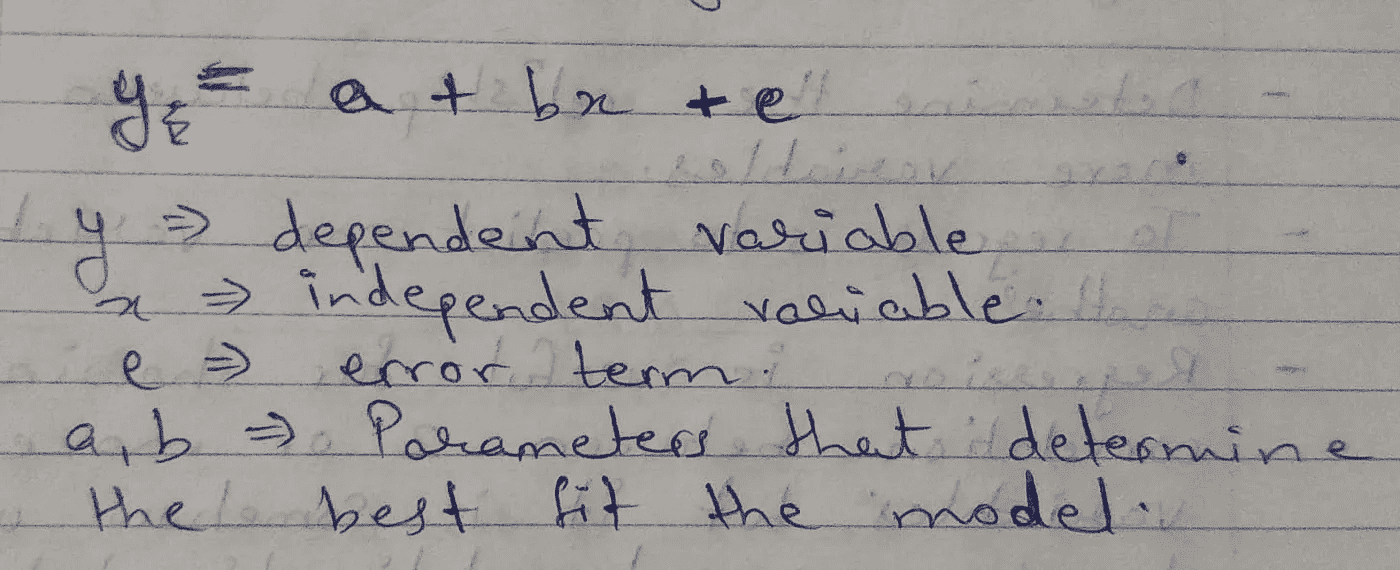 y = a + bx + e
y ⇒ dependent variable
x ⇒ independent variable.
e ⇒ error term.
a, b ⇒ Parameters that determine
the best fit the model.